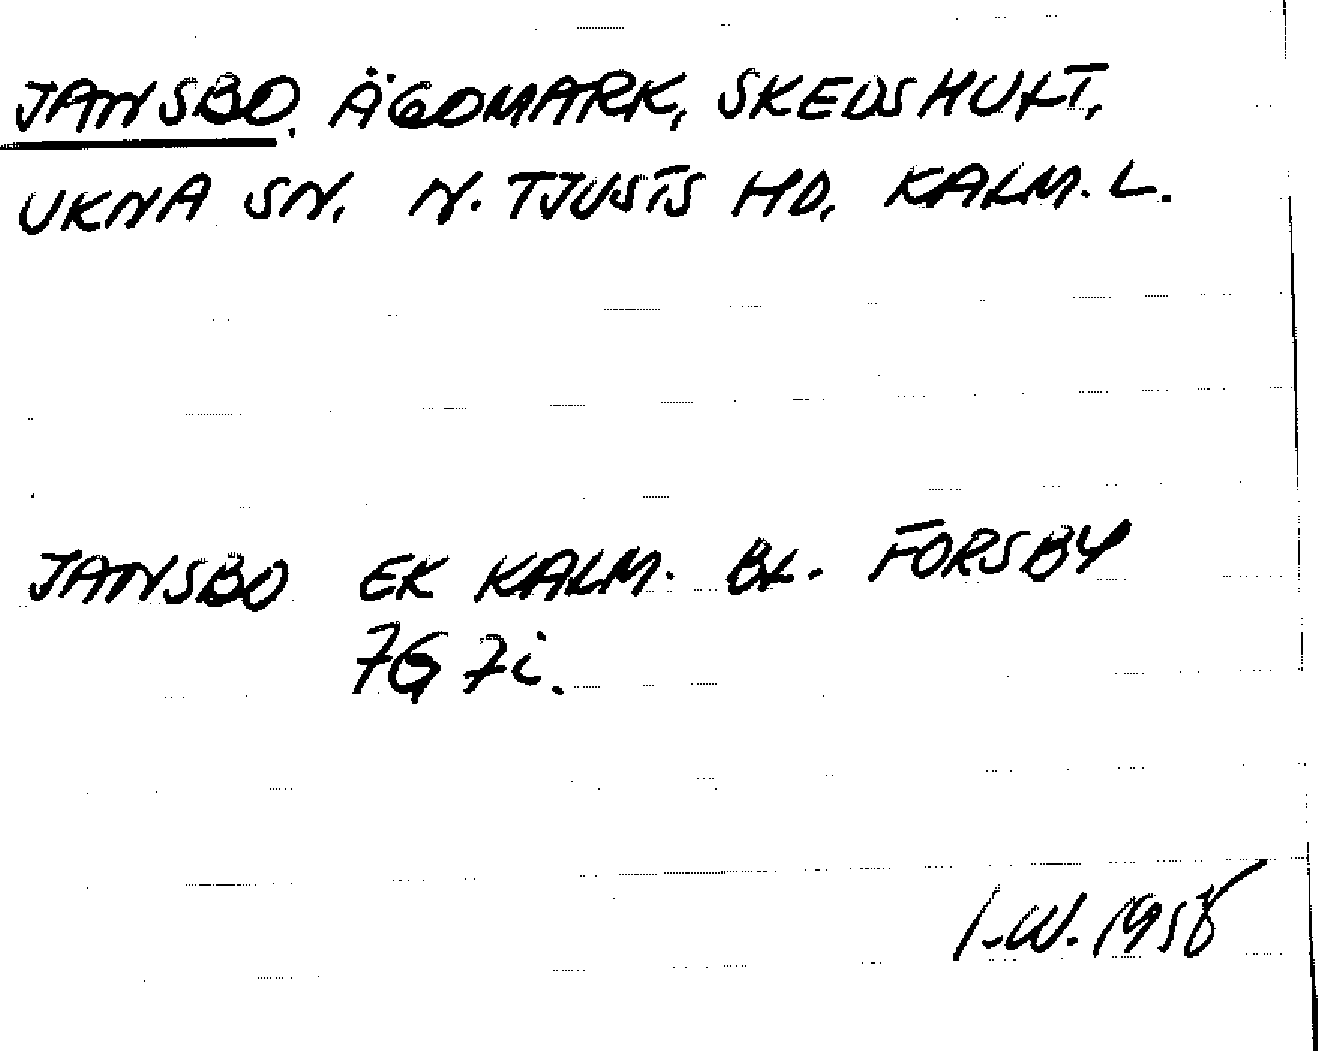 JANSBO, ÄGOMARK, SKEDSHULT,
UKNA SN. N. TJUSTS HD, KALM. L.
JANSBO EK KALM. BL. FORSBY
7G 7i.
I.W. 1958